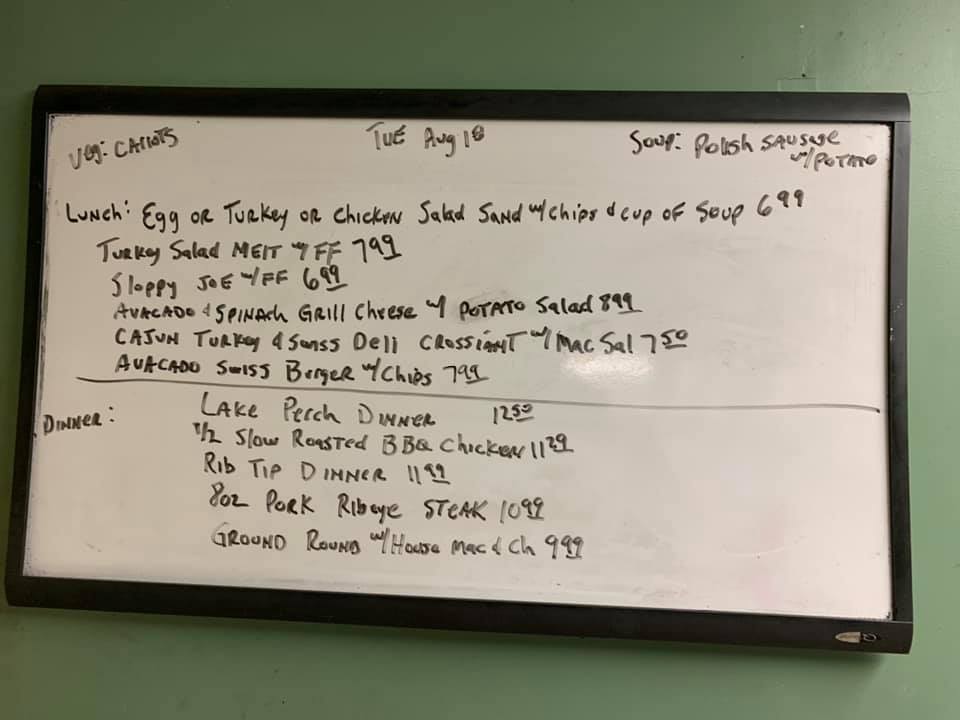 Veg: CARROTS
TUE Aug 18
Soup: Polish SAUSAGE
w/ POTATO
LUNCH: Egg OR TURKEY OR CHICKEN Salad SAND w/ Chips & cup OF SOUP 6 99
TURKEY Salad MElT w/ FF 7 99
Sloppy JOE w/ FF 6 99
AVACADO & SPINACH GRILL Cheese w/ POTATO Salad 8 99
CAJUN TURKEY & Swiss Deli CROSSIANT w/ Mac Sal 7 50
AVACADO Swiss Burger w/ Chips 7 99
DINNER:
LAKE Perch DINNER 12 50
1/2 Slow Roasted BBQ Chicken 11 29
Rib TIP DINNER 11 99
8oz PORK Ribeye STEAK 10 99
GROUND ROUND w/ House Mac & Ch 9 99